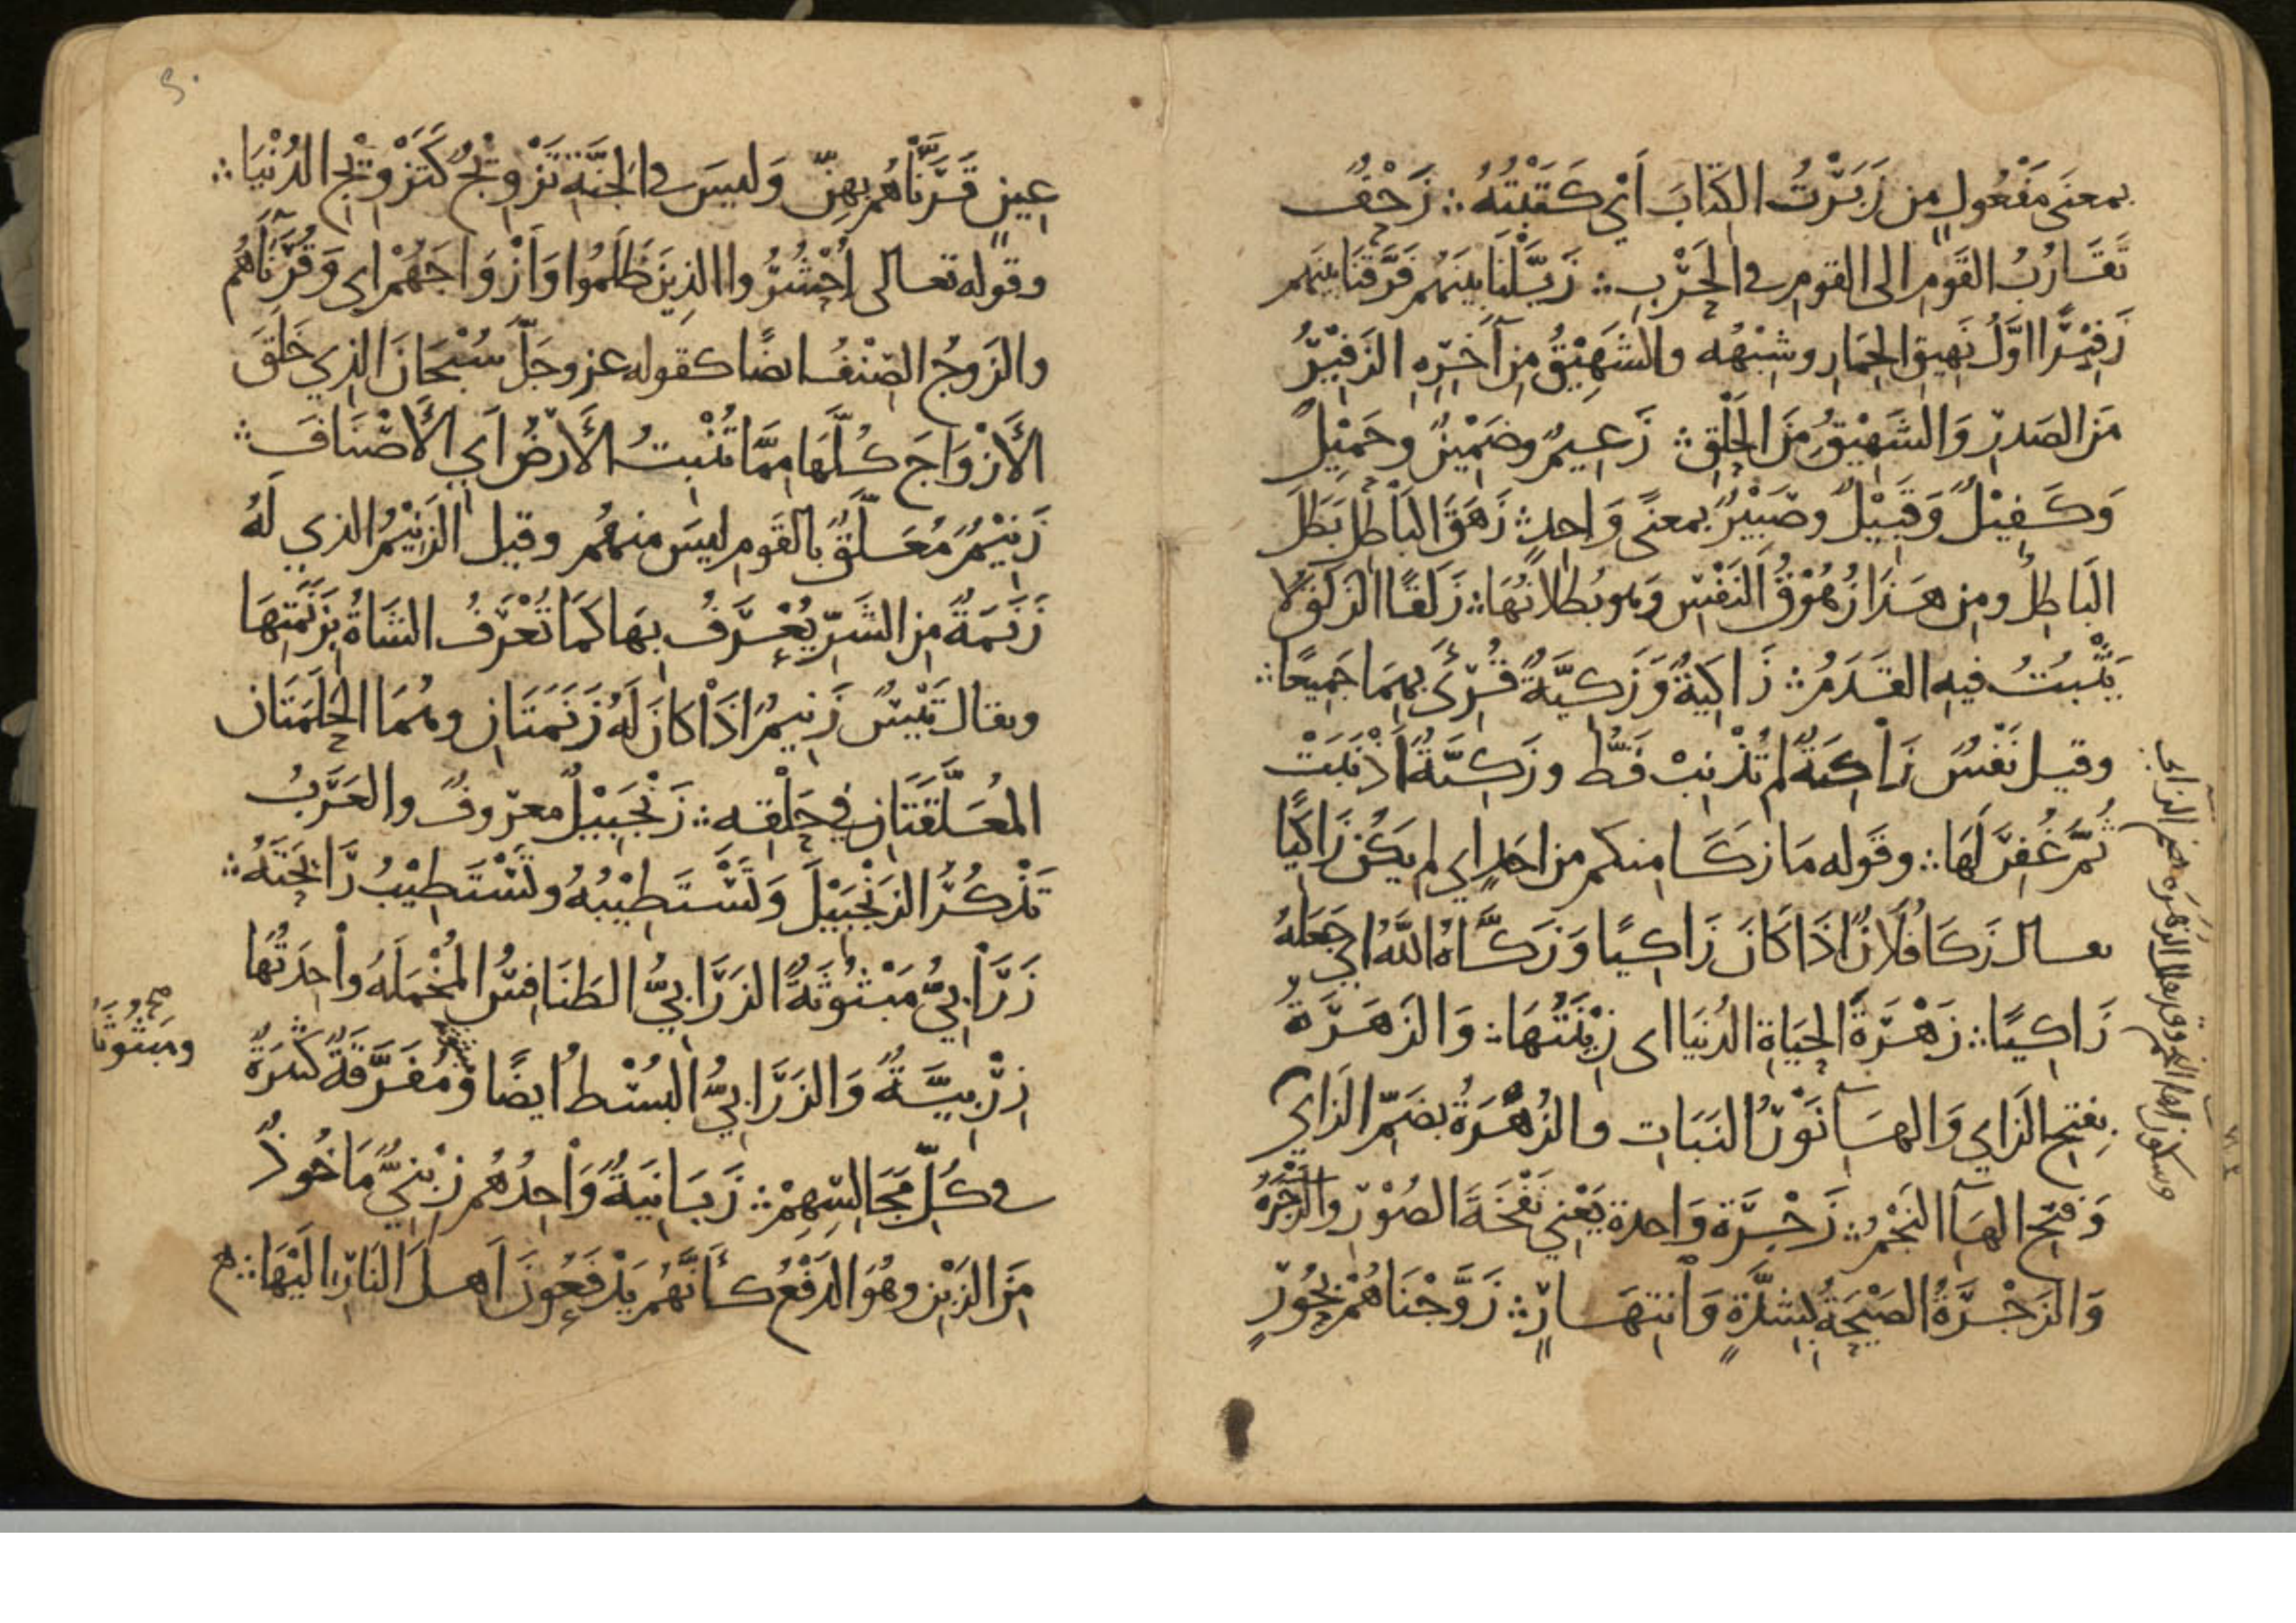 بمعنى مَفْعُولٍ مِن زَبَرْتُ الكِتَابَ أَيْ كَتَبْتُهُ ؞ زَحْفٌ
تَقَارُبُ القَوْمِ الى القومِ في الحَرْبِ ؞ زَيَّلْنَا بَيْنَهُم فَرَّقْنَا بينَهم
زَفِيْرًا اوَّلُ نَهِيقِ الحِمَارِ وشِبْهُه والشَهِيْقُ مِن آخَرِهِ الزَفِيْرُ
مَنَ الصَدرِ وَالشَهِيْقُ مِنَ الحَلْقِ ؞ زَعِيمٌ وضَمِيْنٌ وحَمِيْلٌ
وَكَفِيْلٌ وَقَبِيْلٌ وصَبِيْرٌ بمعنىً وَاحِدٍ ؞ زَهَقَ البَاطِلُ بَطَلَ
البَاطِلُ ومِن هَذَا زُهُوْقُ النَفْسِ وَهو بُطْلَانُهَا ؞ زَلَقًا الزَلَقُ لا
يَثْبُتُ فيهِ القَدَمُ ؞ زَاكِيَةٌ وَزَكِيَّةٌ قُرِئَ بِهِمَا جَمِيعًا ؞
وقيل نَفْسٌ زَاكِيَةٌ لم تُذْنِبْ قَطُّ وزَكِيَّةٌ أَذْنَبَتْ
ثُمَّ غُفِرَ لَهَا ؞ وقَوله مَا زكَا منكم من احَدٍ اي لم يَكُنْ زَاكِيًا
يقال زَكَا فُلَانٌ اذَا كَانَ زَاكِيًا وَزَكَّاهُ اللَّهُ اي جَعَلَهُ
زَاكِيًا ؞ زَهْرَةَ الحَيَاةِ الدُنيَا اى زِيْنَتُهَا ؞ وَالزَهَرَةُ
بِفتحِ الزَايِ وَالهَآءِ نَوْرُ النَبَاتِ والزُهَرَةُ بضَمِّ الزَايِ
وَفتحِ الهَآءِ النَجْمُ ؞ زَجْرَةٌ وَاحدة يَعْنِي نَفْخَةَ الصُوْرِ والزَجْرَةُ
وَالزَجْرَةُ الصَيْحَةُ بِشِدَّةٍ وَانتِهَارٍ ؞ زَوَّجْنَاهُمْ بِحُوْرٍ
عِينٍ قَرَنَّاهُم بِهِنّ وَليسَ في الجَنَّةِ تَزْوِيْجٌ كَتَزْوِيْجِ الدُنْيَا ؞
وقوله تعالى اُحْشُرُوا الذِينَ ظَلَمُوا وَأَزْوَاجَهُمْ اي وَقُرَنَآءَهُم
والزَوجُ الصِنْفُ ايضًا كقوله عز وجَلّ سُبْحَانَ الذِي خَلَقَ
الأَزْوَاجَ كُلَّهَا مِمَّا تُنْبِتُ الأَرْضُ أَيِ الأَصْنَافَ ؞
زَنِيْمٌ مُعَلَّقٌ بالقَومِ ليسَ منهُم وقيل الزَنِيْمُ الذي لَهُ
زَنَمَةٌ مِن الشَرِّ يُعْرَفُ بِهَا كَمَا تُعْرَفُ الشَاةُ بِزَنَمَتِهَا
ويقال تَيْسٌ زَنِيمٌ اذَا كانَ لَهُ زَنَمَتَانِ وهُمَا الحَلَمَتَانِ
المُعَلَّقَتَانِ في حَلْقِه ؞ زَنْجَبِيْلٌ معرُوفٌ والعَرَبُ
تَذْكُرُ الزَنْجَبِيْلَ وَتَسْتَطِيْبُهُ وتَسْتَطِيْبُ رَائِحَتَهُ ؞
زَرَابِيُّ مَبْثُوْثَةٌ الزَرَابِيُّ الطَنَافِسُ المُخْمَلَهُ واحِدَتُهَا
زِرْبِيَّةٌ وَالزَرَابِيُّ البُسْطُ ايضًا وَمُفَرَّقَةٌ كَثِيرَةٌ
في كُلِّ مَجَالِسِهِمْ ؞ زَبَانِيَةٌ وَاحِدُهُم زِبْنِيٌّ مَاخُوذٌ
مِنَ الزَبْنِ وهُوَ الدَفْعُ كَأَنَّهُم يَدْفَعُونَ أَهلَ النَارِ اليْهَا ؞
ومبثوثة
صح